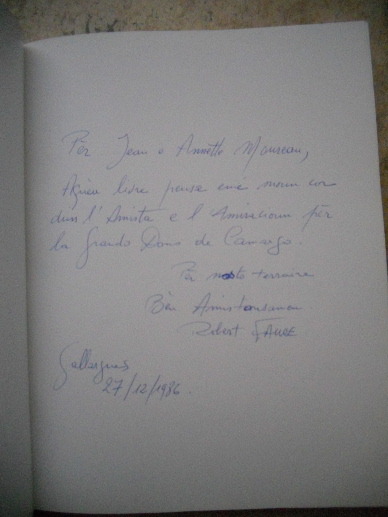 Per Jean e Annette Maureau,
Aqueu libre pense emé moun cor
dins l'Amista e l'Amiracioun pèr
la Grando Dono de Camargo.
Per nosto terraire
Bèn Amistousamen
Robert FAURE
Gallargues
27/12/1986.